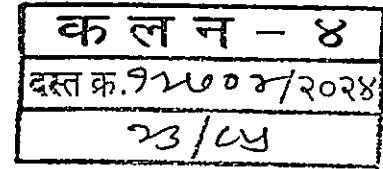 क ल न – ४
दस्त क्र.१२७०२/२०२४
२३/८५